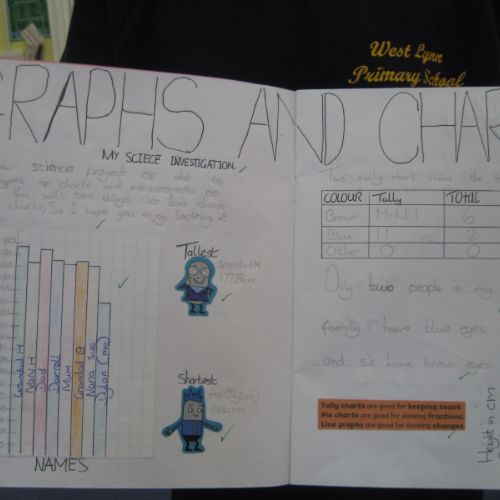 West Lynn
Primary School
GRAPHS AND CHAR
MY SCIECE INVESTIGATION.
science project of
types of charts and measurements
You will see things like bar
charts. So I hope you enjoy looking at
Tallest
Grandad H
Shortest
me (Dylan)
Grandad H
Nan H
Dad
Darrell
Mum
Grandad B
Nana Sue
Dylan (me)
NAMES
This tally chart shows the
COLOUR Tally TOTAL
Brown 6
Blue 2
Other 0 0
Only two people in my
family have blue eyes
and six have brown eyes.
Tally charts are good for keeping count.
Pie charts are good for showing fractions.
Line graphs are good for showing changes.
Height in cm